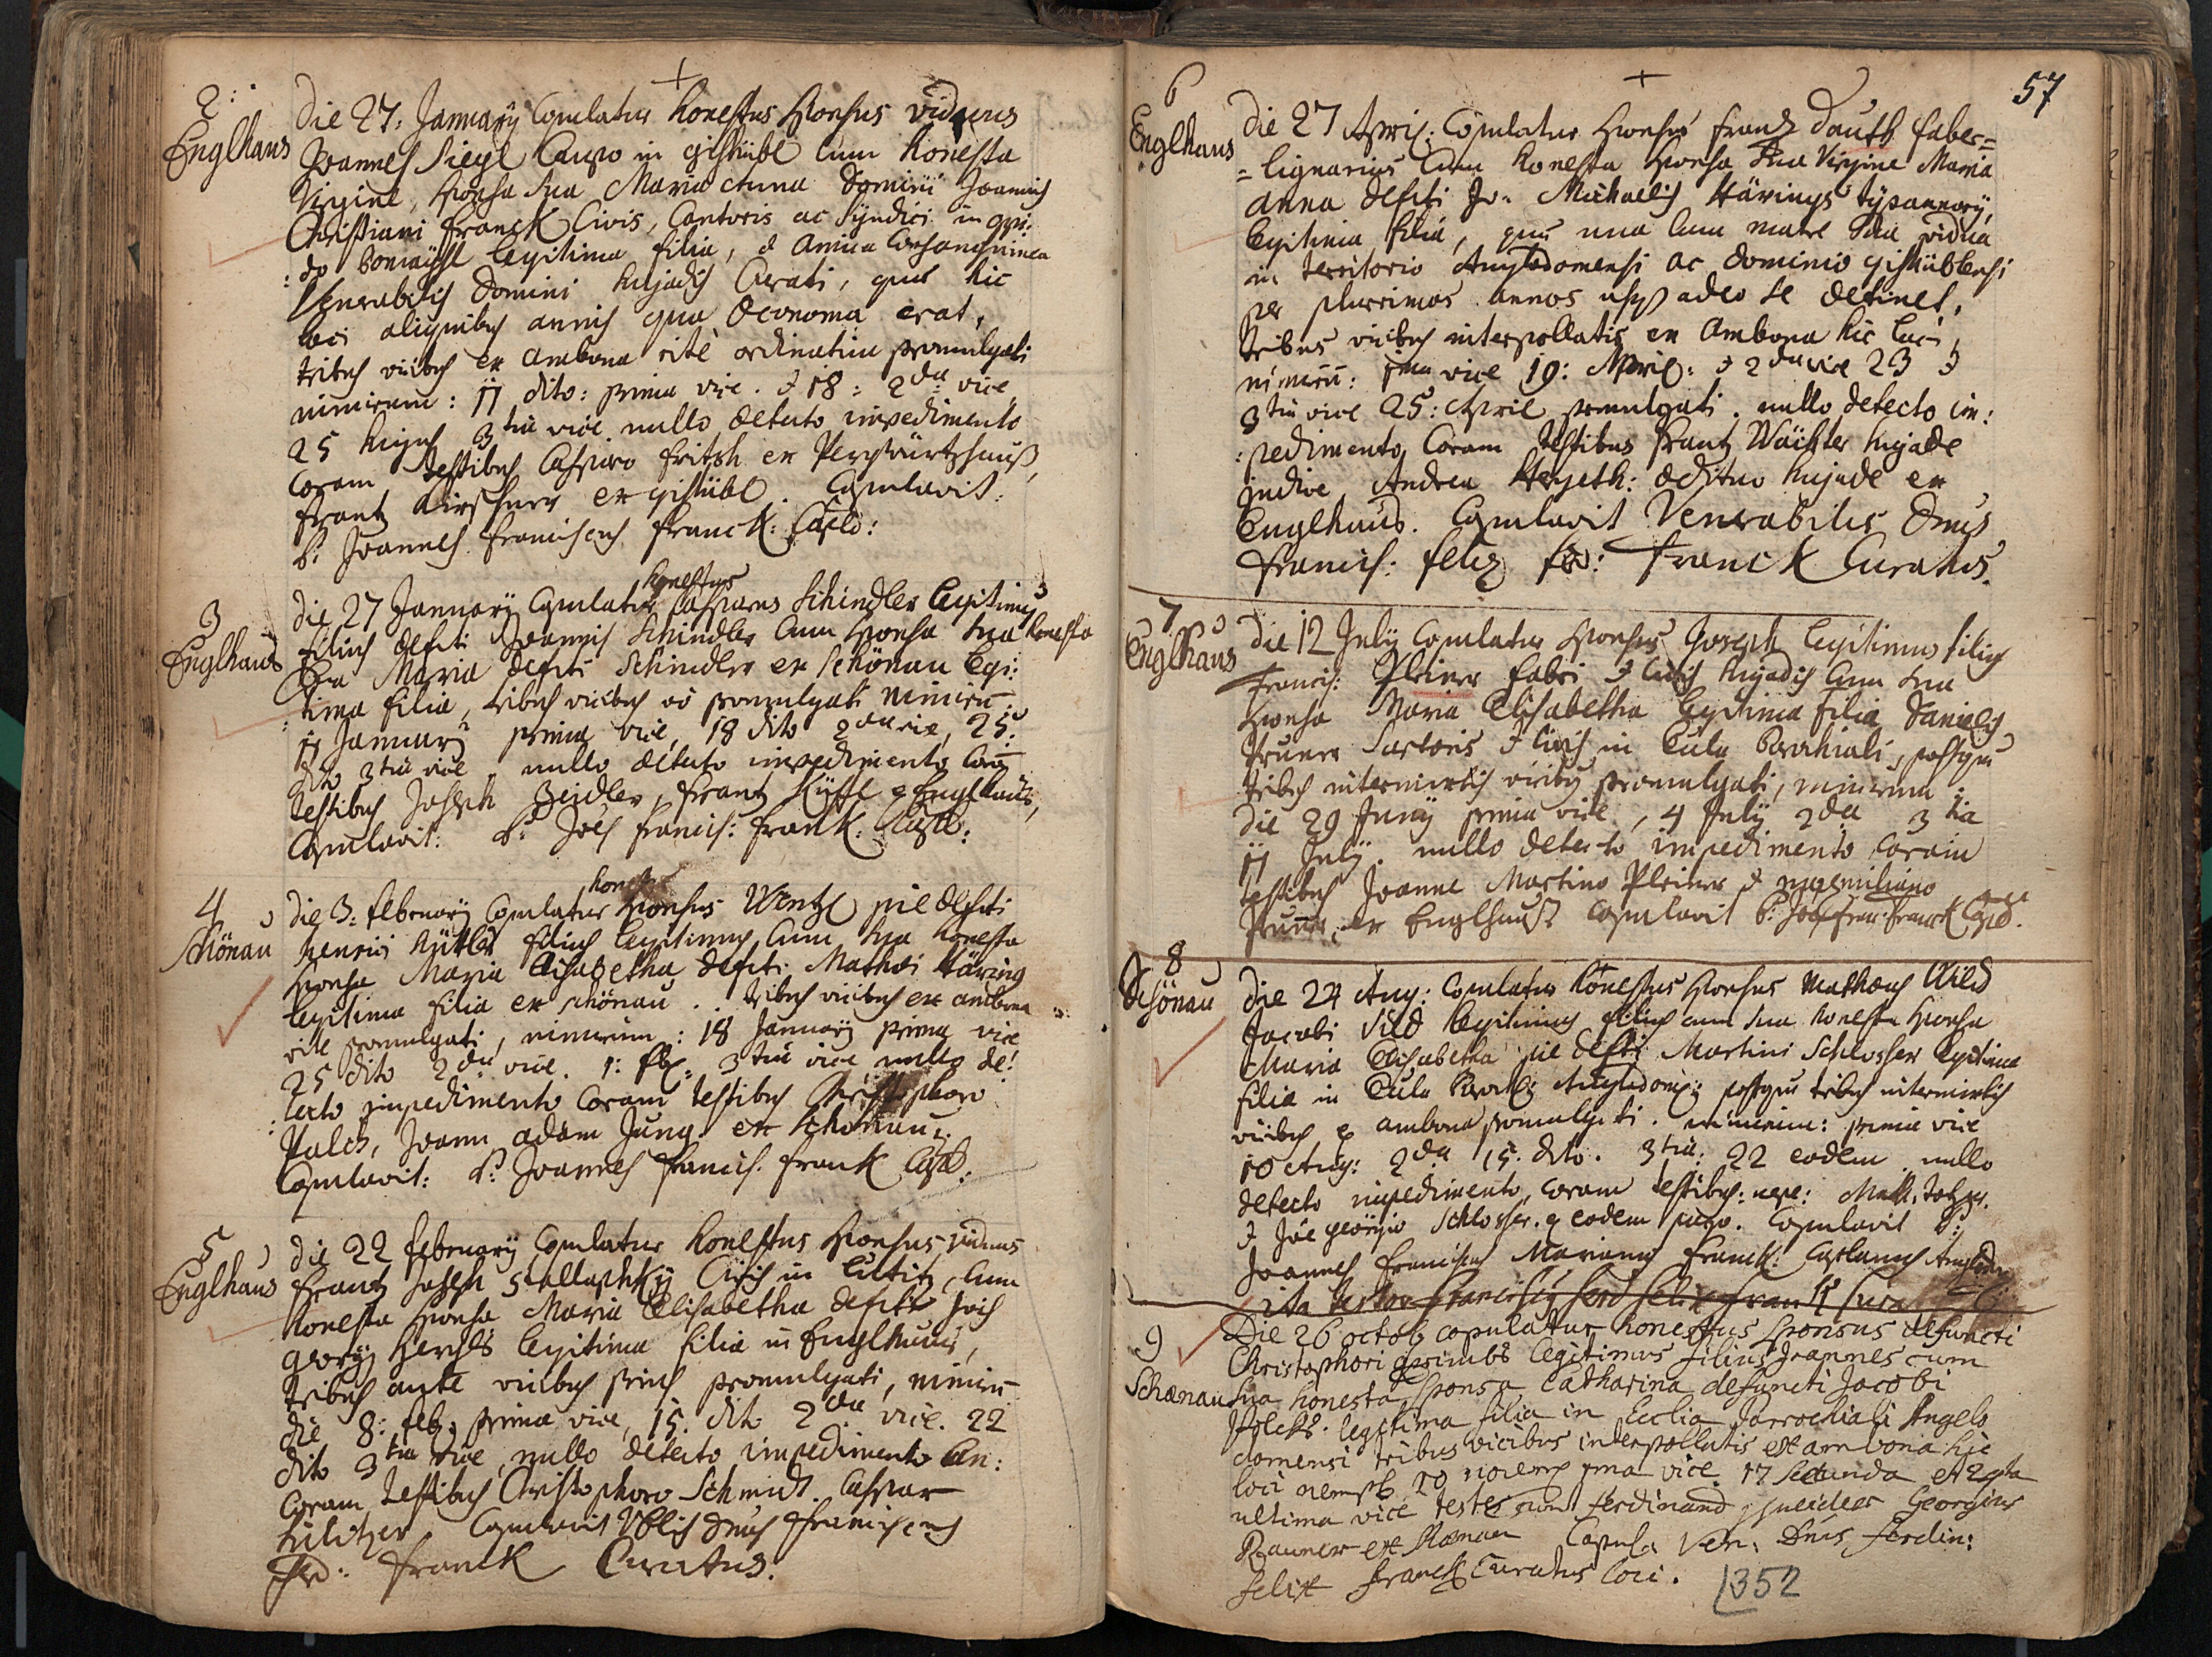 2
Englhaus
Die 27: January Copulatur honestus Sponsus viduus
Joannes Siegl Caupo in gishübl cum honesta
Virgine, Sponsa sua Maria Anna Domini Joannis
Christiani Franck Civis, Cantoris ac Syndici in opi:
:do legitima filia, et Amica Consanguinea
Venerabilis Domini hujadis Curati, quae hic
loci aliquibus annis qua Oeconoma erat,
tribus vicibus ex Ambona rite ordinatim promulgati
nimirum: 11 dito: prima vice. et 18: 2da vice
25 hujus 3tia vice nullo detecto impedimento
Coram testibus Casparo Fritsh ex
Frantz Kirschner ex gishübl. Copulavit:
P: Joannes Franciscus Franck: Caplo:
3
Englhaus
Die 27 January Copulatur honestus Casparus Schindler legitimus
filius defcti Joannis Schindler Cum Sponsa sua honesta
Maria defcti Schindler ex Schönau legi:
:tima filia, tribus vicibus promulgati nimirum
11 January prima vice, 18 dito 2da vice, 25:
dito 3tia vice, nullo detecto impedimento Coram
testibus Joseph Zeidler, Frantz ex Englhaus,
Copulavit: P: Joes Francis: Frank: Caplo:
4
Schönau
Die 3: February Copulatur honest: Sponsus Wentzl pie defcti
Henrici filius legitimus, Cum sua honesta
Sponsa Maria Elisabetha defcti Mathei Häring
legitima filia ex Schönau. tribus vicibus ex ambona
rite promulgati, nimirum: 18 January prima vice
25 dito 2da vice. 1: Feb: 3tia vice nullo de:
:tecto impedimento Coram testibus Christophoro
Palch, Joann Adam Jung ex Schönau.
Copulavit: P: Joannes Francis: Frank Caplo:
5
Englhaus
Die 22 February Copulatur honestus Sponsus viduus
Frantz Joseph Civis in Cum
honesta Sponsa Maria Elisabetha defcti Jois
Georgij legitima filia in Englhaus,
tribus ante vicibus promulgati, nimirum
die 8: feb: prima vice, 15 dito 2da vice. 22
dito 3tia vice, nullo detecto impedimento
Coram testibus Christophoro Schmidt. Caspar
Copulavit Vblis Dnus Franciscus
Ferd: Franck Curatus.
57
6
Englhaus
Die 27 April: Copulatur Sponsus Frantz Dauth faber=
=lignarius Cum honesta Sponsa sua Virgine Maria
Anna defcti Jo: Michaelis Härings
legitima filia, quae una cum matre sua vidua
in territorio Angelodomensi ac Dominio gishüblensi
per plurimos annos usque adeo se detinet,
tribus vicibus interpollatis ex Ambona hic loci,
nimirum: 1ma vice 19: April: et 2da vice 23 et
3tia vice 25: April promulgati. nullo detecto im:
:pedimento, Coram testibus Frantz Wächter hujade
judice, Andrea Hergeth: Ædituo hujade ex
Englhaus. Copulavit Venerabilis Dnus
Francis: Felix Fer: Franck Curatus.
7
Englhaus
Die 12 July Copulatur Sponsus Joseph legitimus filius
Francis: Pleiner fabri et Civis hujadis Cum sua
Sponsa Maria Elisabetha legitima filia Danielis
Pruner Sartoris et Civis in Ecclia Parochiali, postquam
tribus intermixtis vicibus promulgati, nimirum:
die 29 Juny prima vice, 4 July 2da 3tia
11 July. nullo detecto impedimento Coram
testibus Joanne Martino Pleiner et Maximiliano
Pruner ex Englhaus Copulavit P: Joes Fran: Franck Caplo.
8
Schönau
Die 24 Aug: Copulatur honestus Sponsus Mathaeus Wild
Jacobi Vild legitimus filius cum sua honesta Sponsa
Maria Elisabetha pie defcti Martini Schlosser legitima
filia in Ecclia Paroch: Angelodom: postquam tribus intermixtis
vicibus ex ambona promulgati. nimirum: prima vice
10 Aug: 2da 15: dito. 3tia: 22 eodem nullo
detecto impedimento, coram testibus: nepe: Math:
et Joe georgio Schlosser. ex eodem pago. Copulavit P:
Joannes Franciscus Marianus Franck: Caplanus
ita testor Franciscus Ferd Felix Franck
9
Schœnau
Die 26 octob copulatur honestus sponsus defuncti
Christophori legitimus filius Joannes cum
sua honesta sponsa Catharina defuncti Jacobi
legitima filia in Ecclia Parrochiali Angelo
domensi tribus vicibus interpollatis ex ambona hic
loci nempe 10 ma vice 17 secunda et
ultima vice testes sunt Ferdinand Georgius
ex Schœnau Copula: Ven: Dnus Ferdin:
Felix Franck Curatus loci.
352